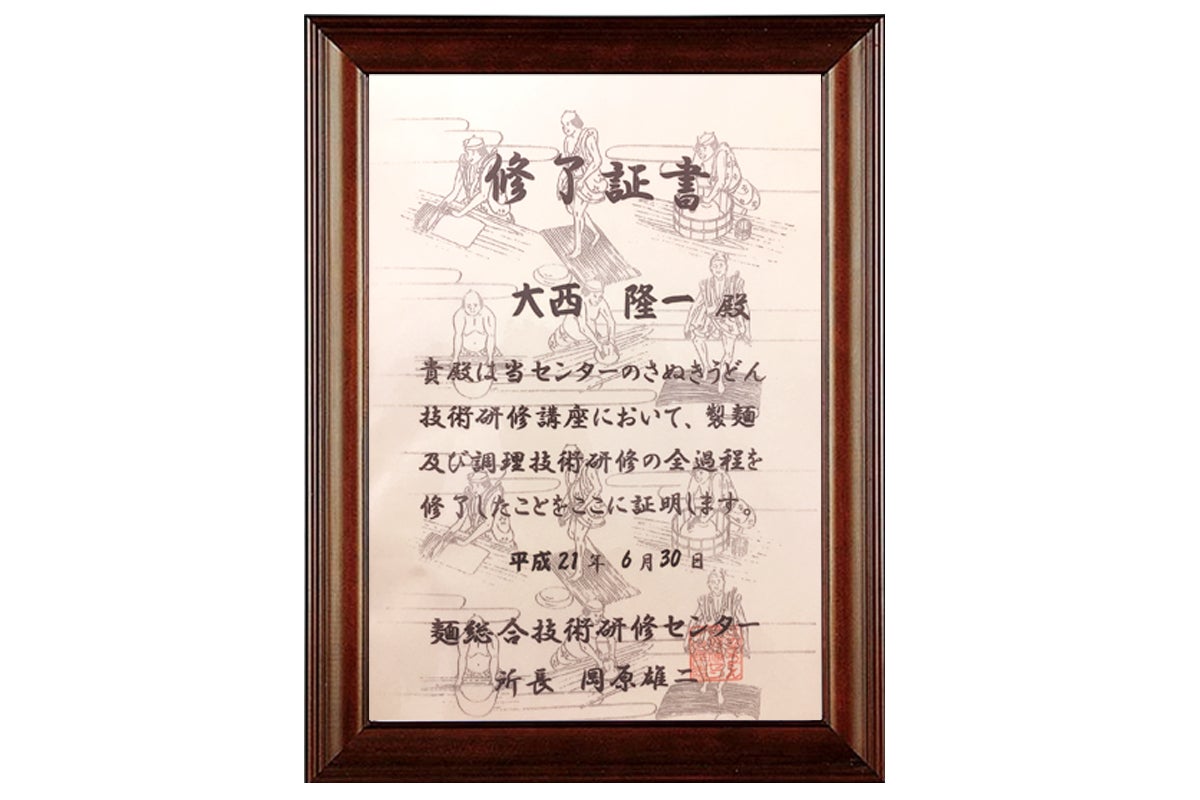 修了証書
大西 隆一 殿
貴殿は当センターのさぬきうどん
技術研修講座において、製麺
及び調理技術研修の全過程を
修了したことをここに証明します。
平成21年 6月30日
麺総合技術研修センター
所長 岡原雄二